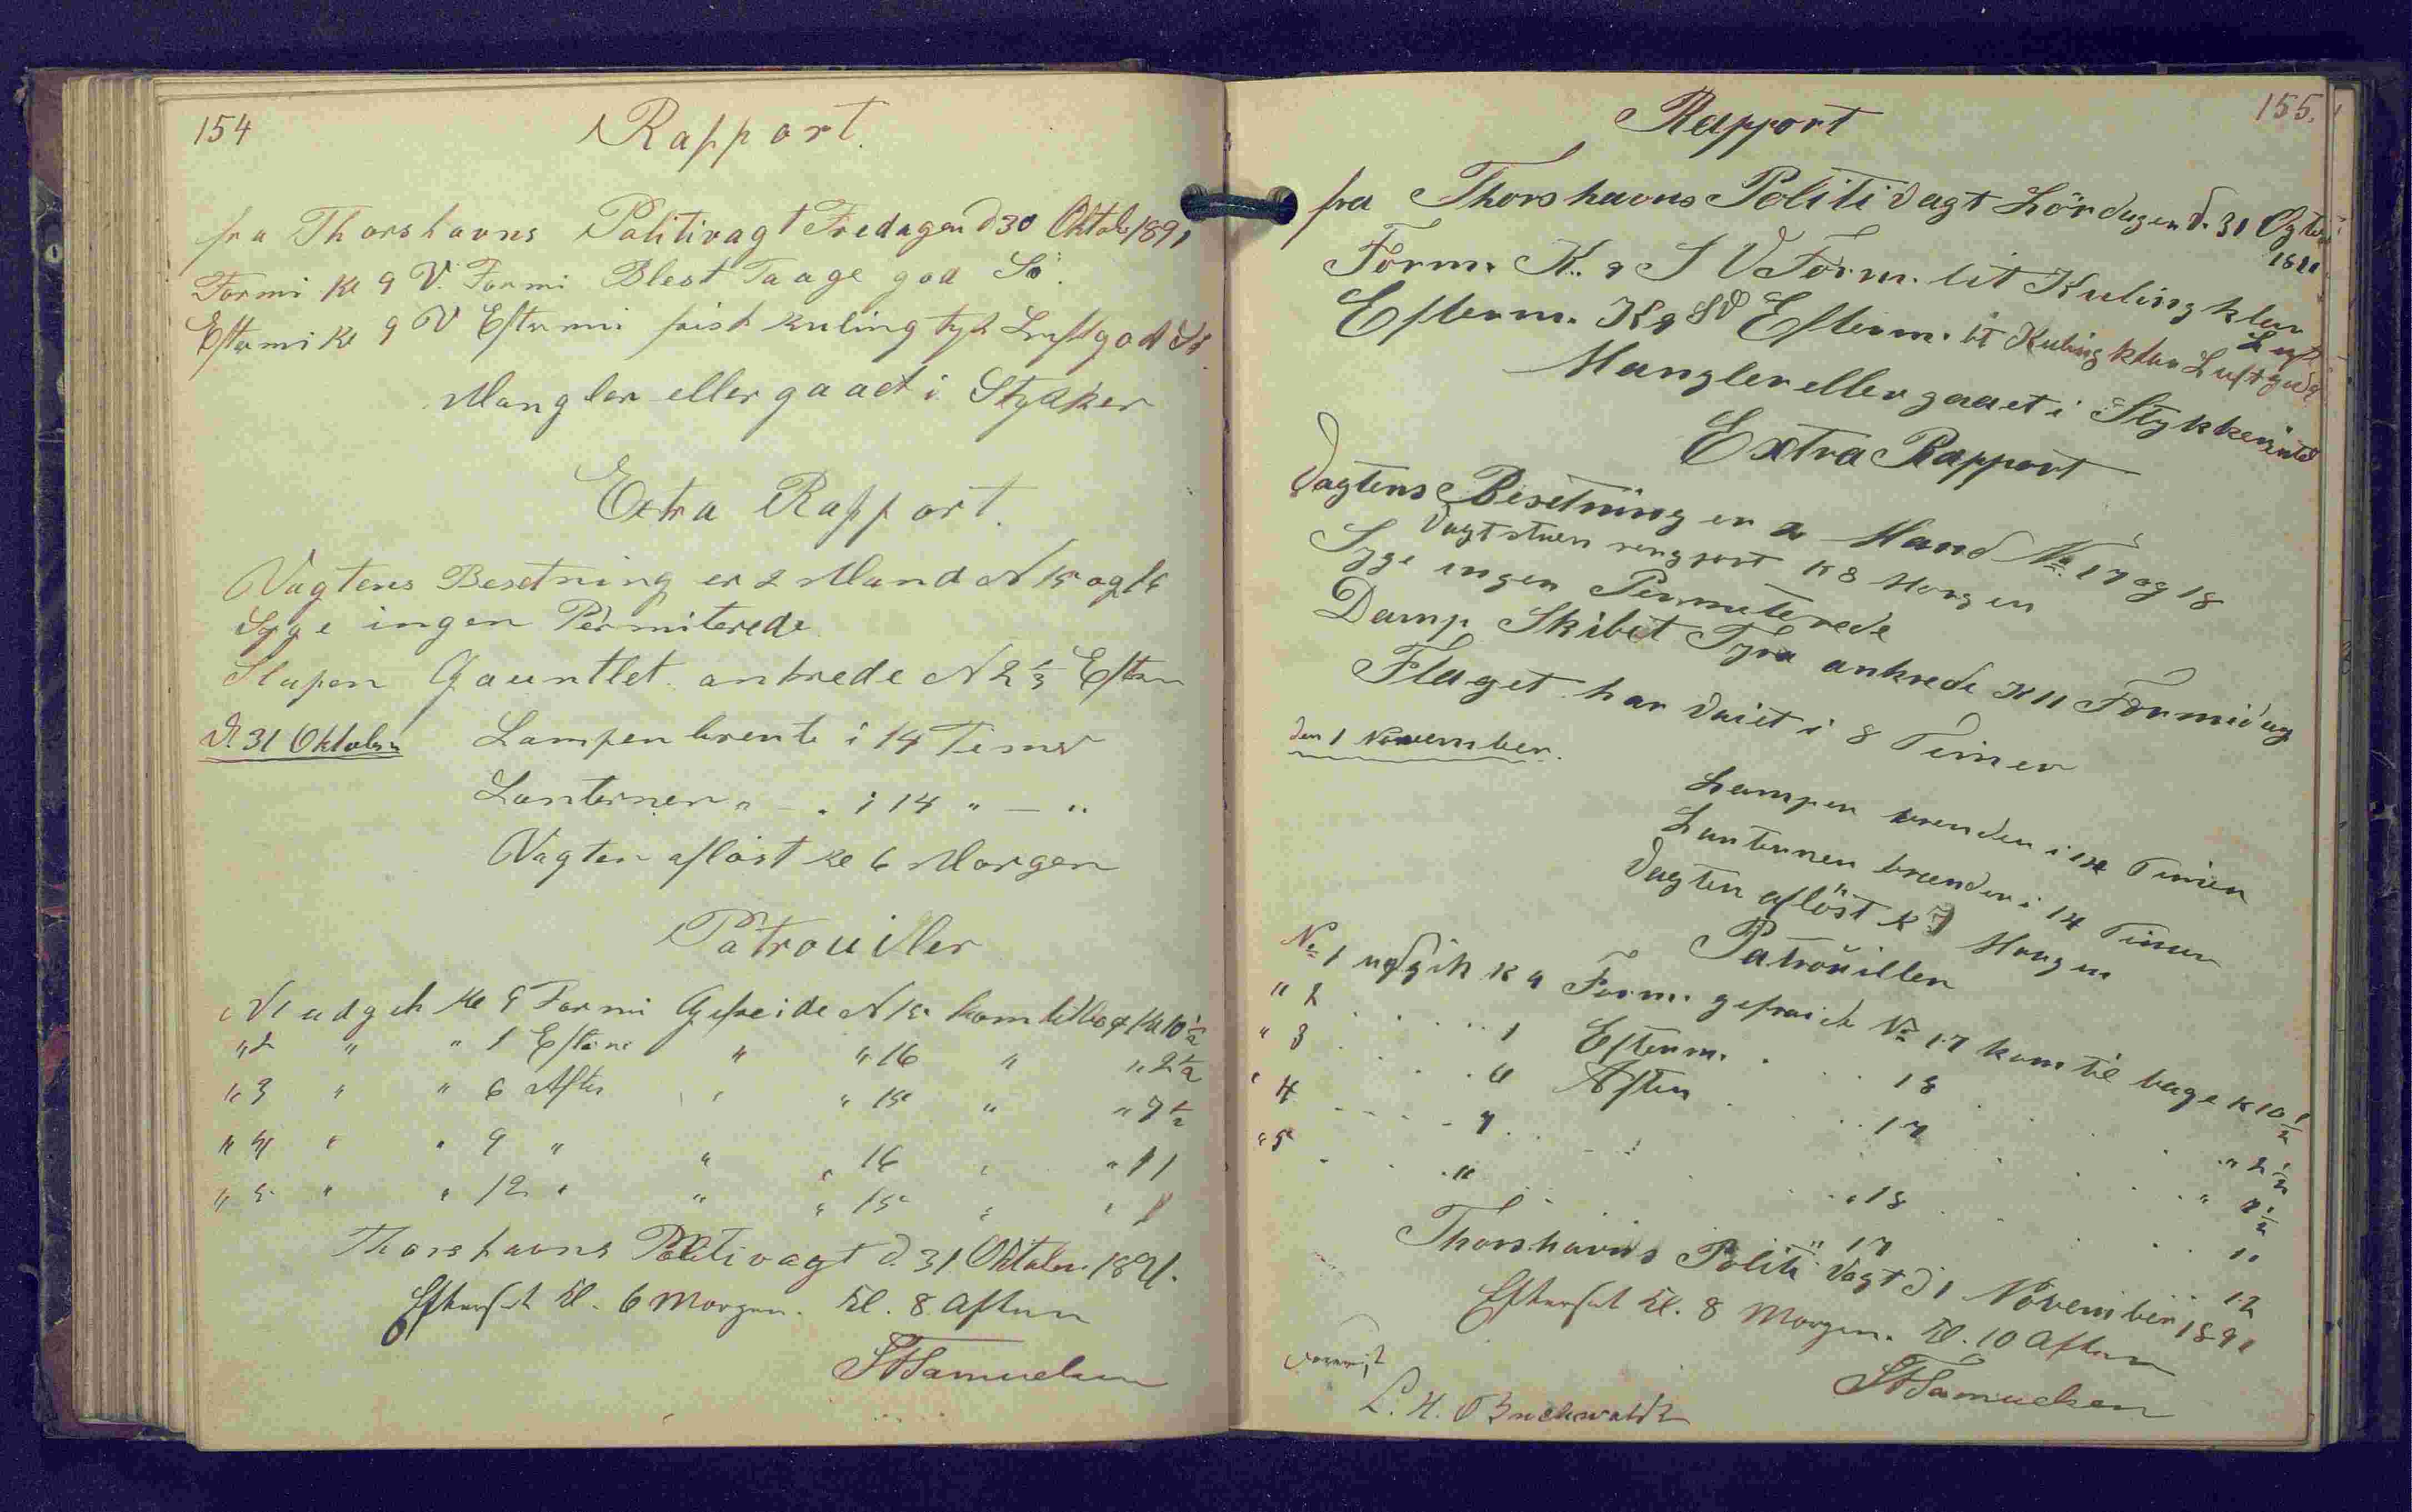 154
Rapport.
fra Thorshavns Politivagt Fredagen d 30 Oktob 1891
Formi Kl 9 V. Formi Blest Taage god Sö.
Eftermi Kl 9 V Eftermi frisk kuling tyk Luft god Sö
Mangler eller gaaet i Stykker
Extra Rapport.
Vagtens Besetning er 2 Mand N 15 og 16
Syge ingen Permiterede
Slupen Gauntlet ankrede N 2 1/2 Efterm
d. 31 Oktober Lampen brente i 14 Timer
Lanternen " — " i 14 " — "
Vagten aflöst Kl 6 Morgen
Patrouiller
N 1 udgik Kl 9 Formi Gefreide N 15 kom tilbag Kl 10 1/2
" 2 " " 1 Efterm " " 16 " " 2 1/2
" 3 " " 6 Aften " " 15 " " 7 1/2
" 4 " " 9 " " " 16 " " 11
" 5 " " 12 " " " 15 " " 1
Thorshavns Politivagt d. 31 Oktober 1891.
Efterset Kl. 6 Morgen. Kl. 8 Aften
Samuelsen
155.
Rapport
fra Thorshavns Politi Vagt Lördagen d. 31 Ogtbr
1891
Form. K. 9 S V Form. lit Kuling klar
Luft
Efterm. K 9 SV Efterm. lit Kuling klar Luft god Sö
Mangler eller gaaet i Stykker intet
Extra Rapport
Vagtens Besetning er 2 Mand No. 17 og 18
Vagtstuen rengjort K 8 Morgen
Syge ingen Permiterede
Damp Skibet Tyra ankrede K 11 Formidag
Flaget har Vaiet i 8 Timer
den 1 November.
Lampen brenden i 14 Timer
Lanternen brenden i 14 Timer
Vagten aflöst K 7 Morgen
Patroüillen
No 1 udgik K 9 Form. gefraide No 17 kom til bage K 10 1/2
" 2 . . . . 1 Efterm. . . . 18 . . . " 2 1/2
" 3 . . . . 6 Aften . . . 17 . . . " 7 1/2
" 4 - - - - 9 . . . . . 18 . . . 11
" 5 . . . . 11 . . . . " 17 . . . 12
Thorshavns Politi Vagt d 1 November 1891
Efterset Kl. 8 Morgen. Kl. 10 Aften
Samuelsen
L. H. Buchwaldt